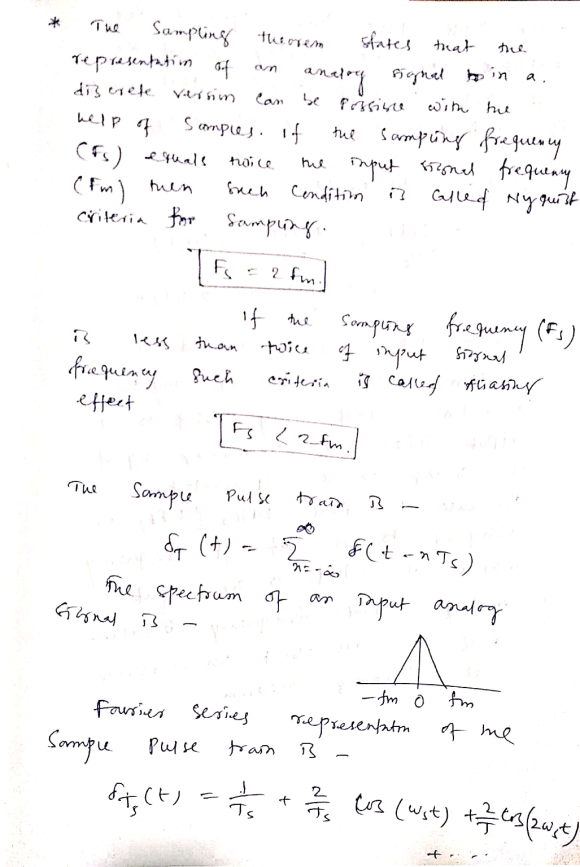 * The Sampling theorem states that the
representation of an analog signal to in a.
discrete version can be possible with the
help of Samples. If the sampling frequency
(Fs) equals twice the input signal frequency
(Fm) then such condition is called Nyquist
criteria for Sampling.
Fs = 2 fm.
If the Sampling frequency (Fs)
is less than twice of input signal
frequency such criteria is called Aliasing
effect
Fs < 2 fm.
The Sample Pulse train is –
δT (t) = ∞ Σ n=-∞ δ(t - nTs)
The spectrum of an input analog
signal is –
-fm 0 fm
Fourier series representatn of the
Sample Pulse train is –
δTs(t) = 1/Ts + 2/Ts Cos (ωst) + 2/T Cos(2ωst)
+ ....